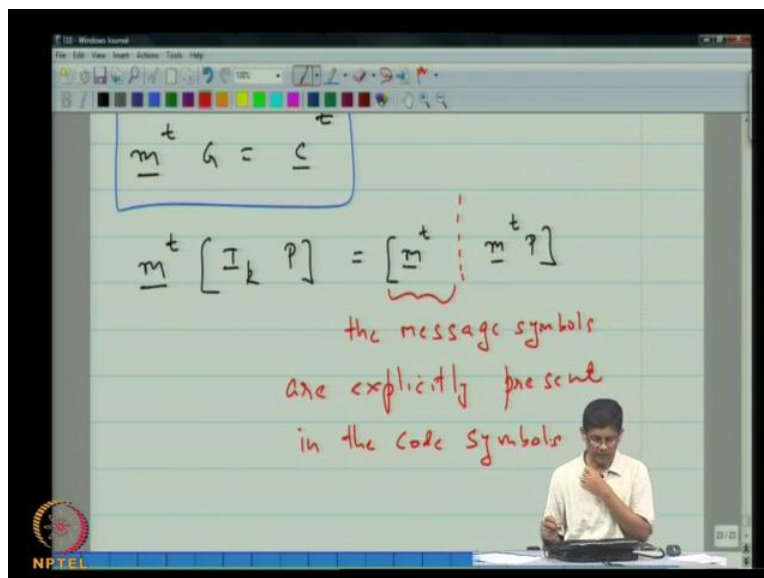 110 - Windows Journal
File Edit View Insert Actions Tools Help
100%
B I
m^t G = c^t
m^t [I_k P] = [m^t ¦ m^t P]
the message symbols
are explicitly present
in the code symbols
23 / 23
NPTEL